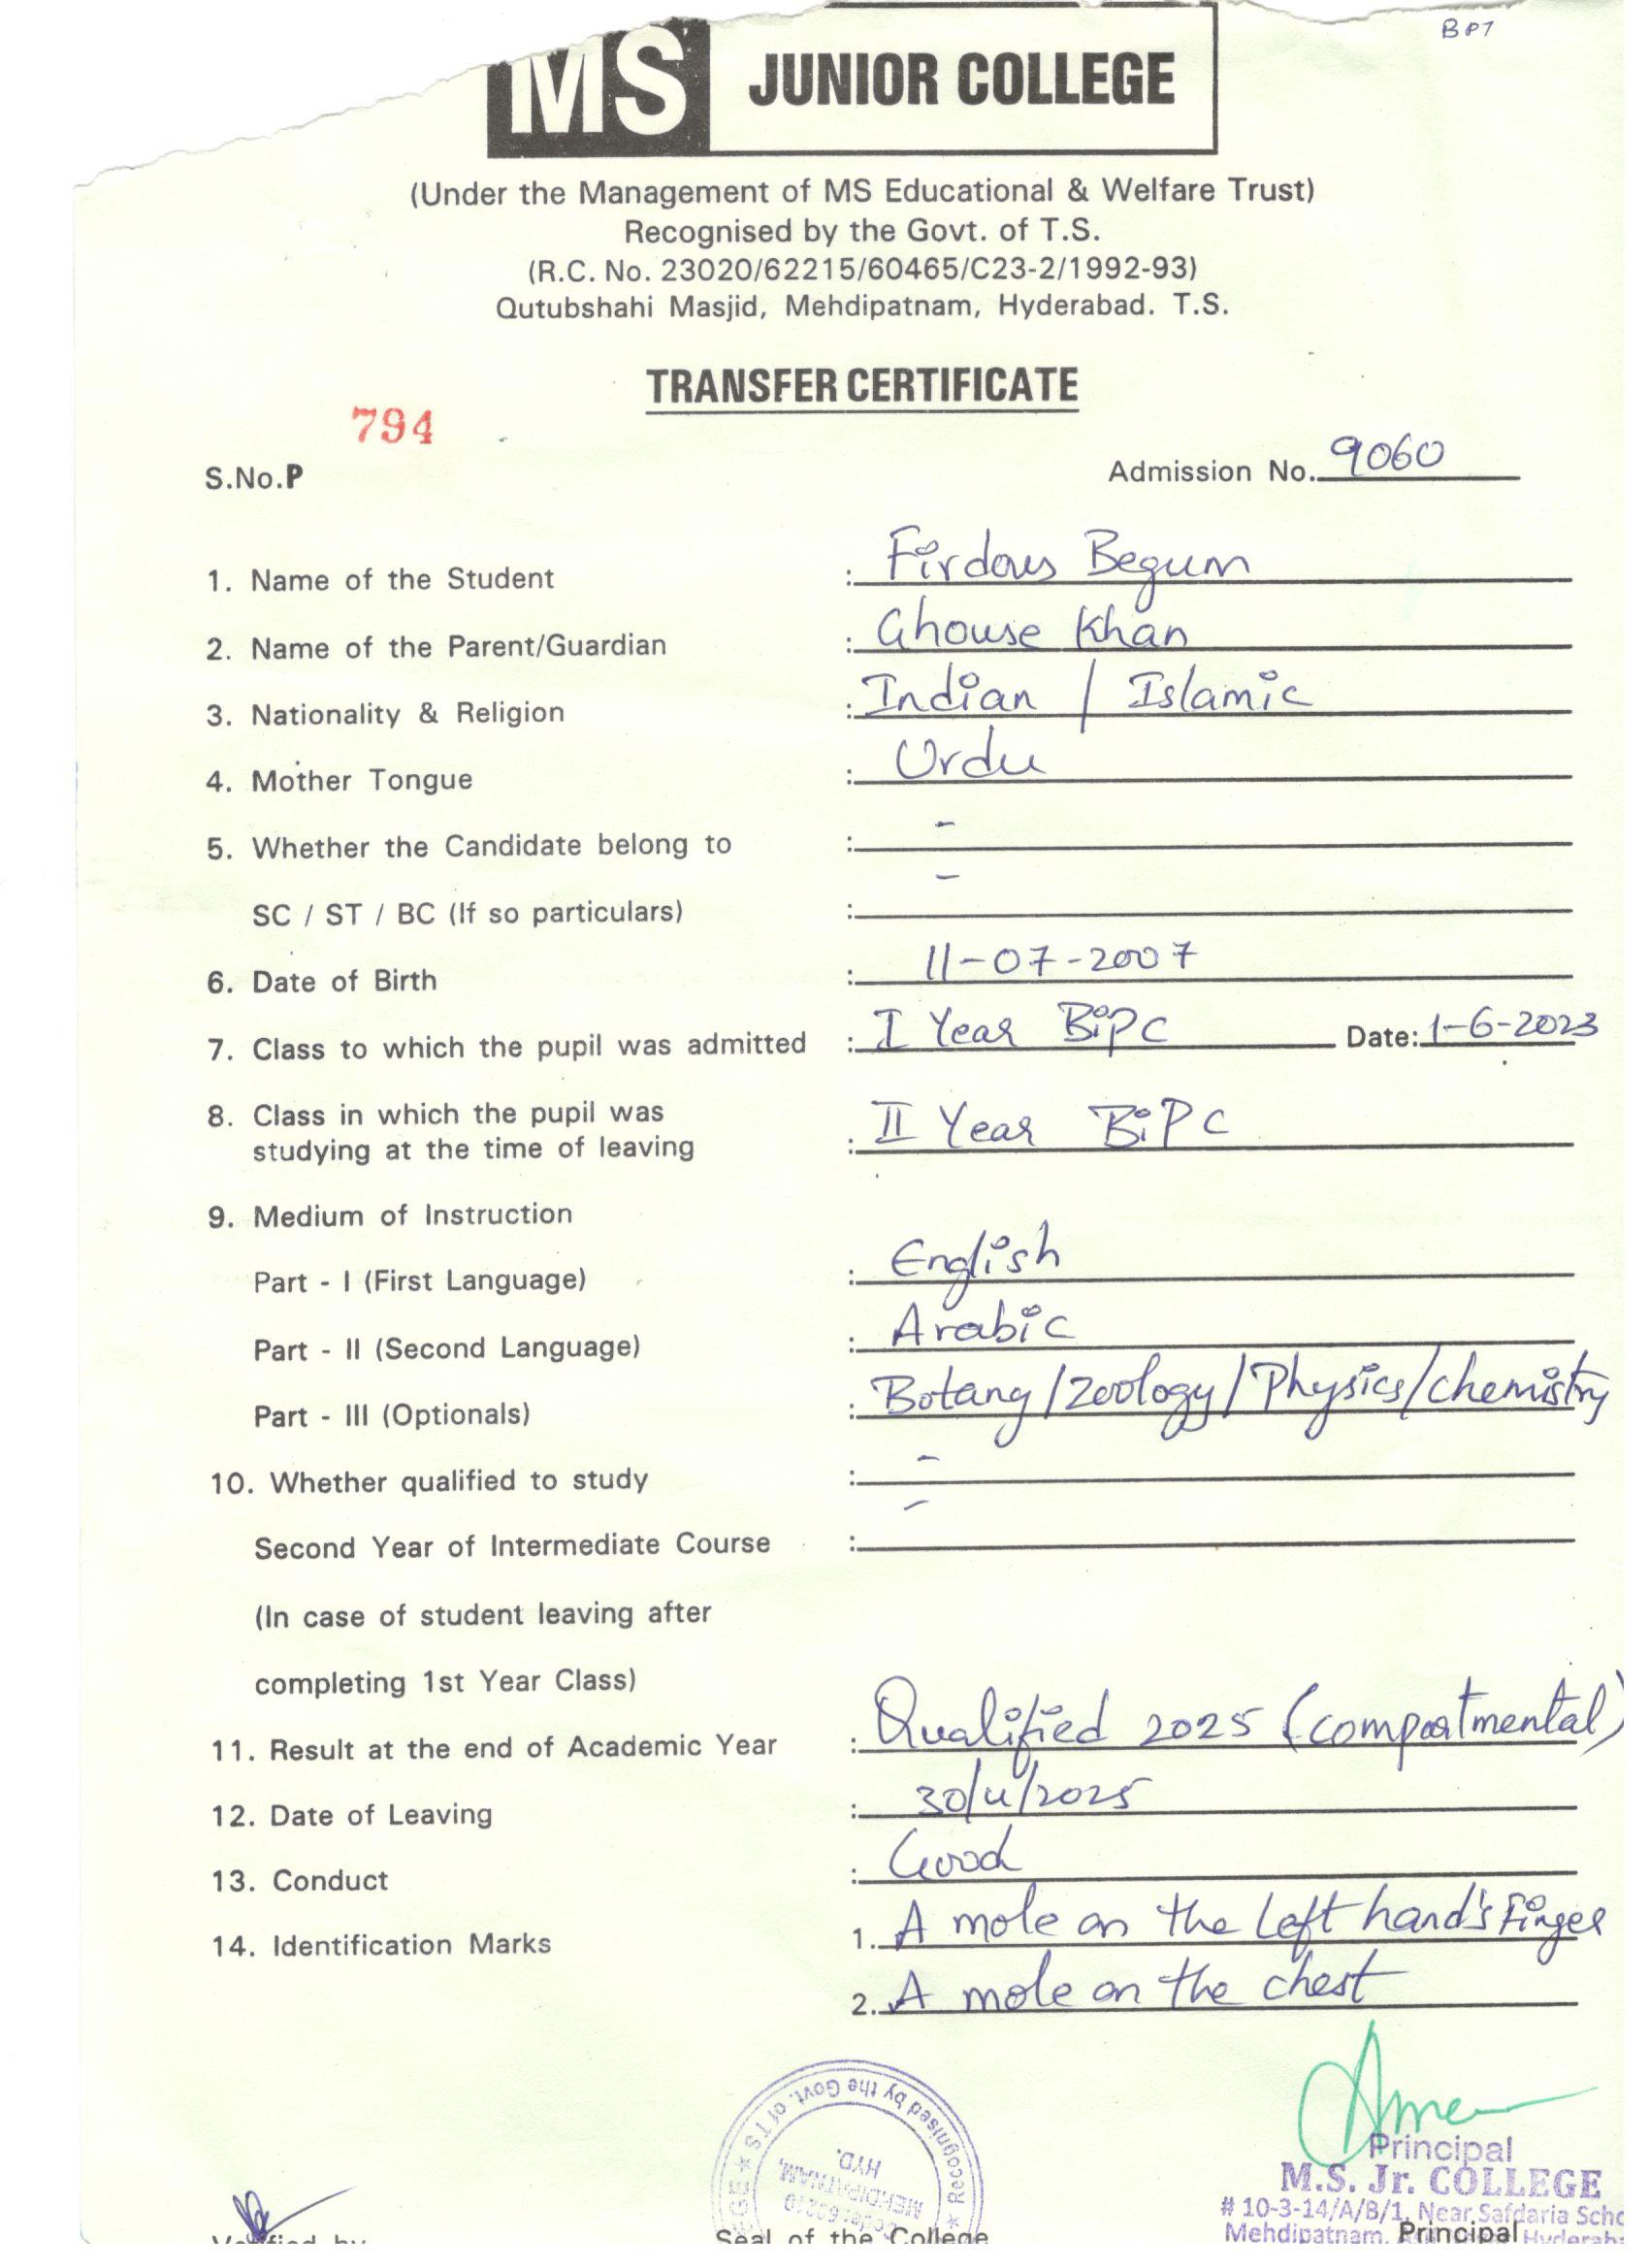 BPT
MS JUNIOR COLLEGE
(Under the Management of MS Educational & Welfare Trust)
Recognised by the Govt. of T.S.
(R.C. No. 23020/62215/60465/C23-2/1992-93)
Qutubshahi Masjid, Mehdipatnam, Hyderabad. T.S.
TRANSFER CERTIFICATE
794
S.No.P Admission No. 9060
1. Name of the Student : Firdous Begum
2. Name of the Parent/Guardian : Ghouse Khan
3. Nationality & Religion : Indian / Islamic
4. Mother Tongue : Urdu
5. Whether the Candidate belong to : -
SC / ST / BC (If so particulars) : -
6. Date of Birth : 11-07-2007
7. Class to which the pupil was admitted : I Year BiPC Date: 1-6-2023
8. Class in which the pupil was
studying at the time of leaving : II Year BiPC
9. Medium of Instruction
Part - I (First Language) : English
Part - II (Second Language) : Arabic
Part - III (Optionals) : Botany/Zoology/Physics/chemistry
10. Whether qualified to study : -
Second Year of Intermediate Course : -
(In case of student leaving after
completing 1st Year Class)
11. Result at the end of Academic Year : Qualified 2025 (compartmental)
12. Date of Leaving : 30/4/2025
13. Conduct : Good
14. Identification Marks 1. A mole on the Left hand's Finger
2. A mole on the chest
★ Recognised by the Govt. of TS ★
MEHDIPATNAM,
HYD.
Principal
M.S. Jr. COLLEGE
# 10-3-14/A/B/1, Near Safdaria Scho
Mehdipatnam,
Verified by Seal of the College Principal